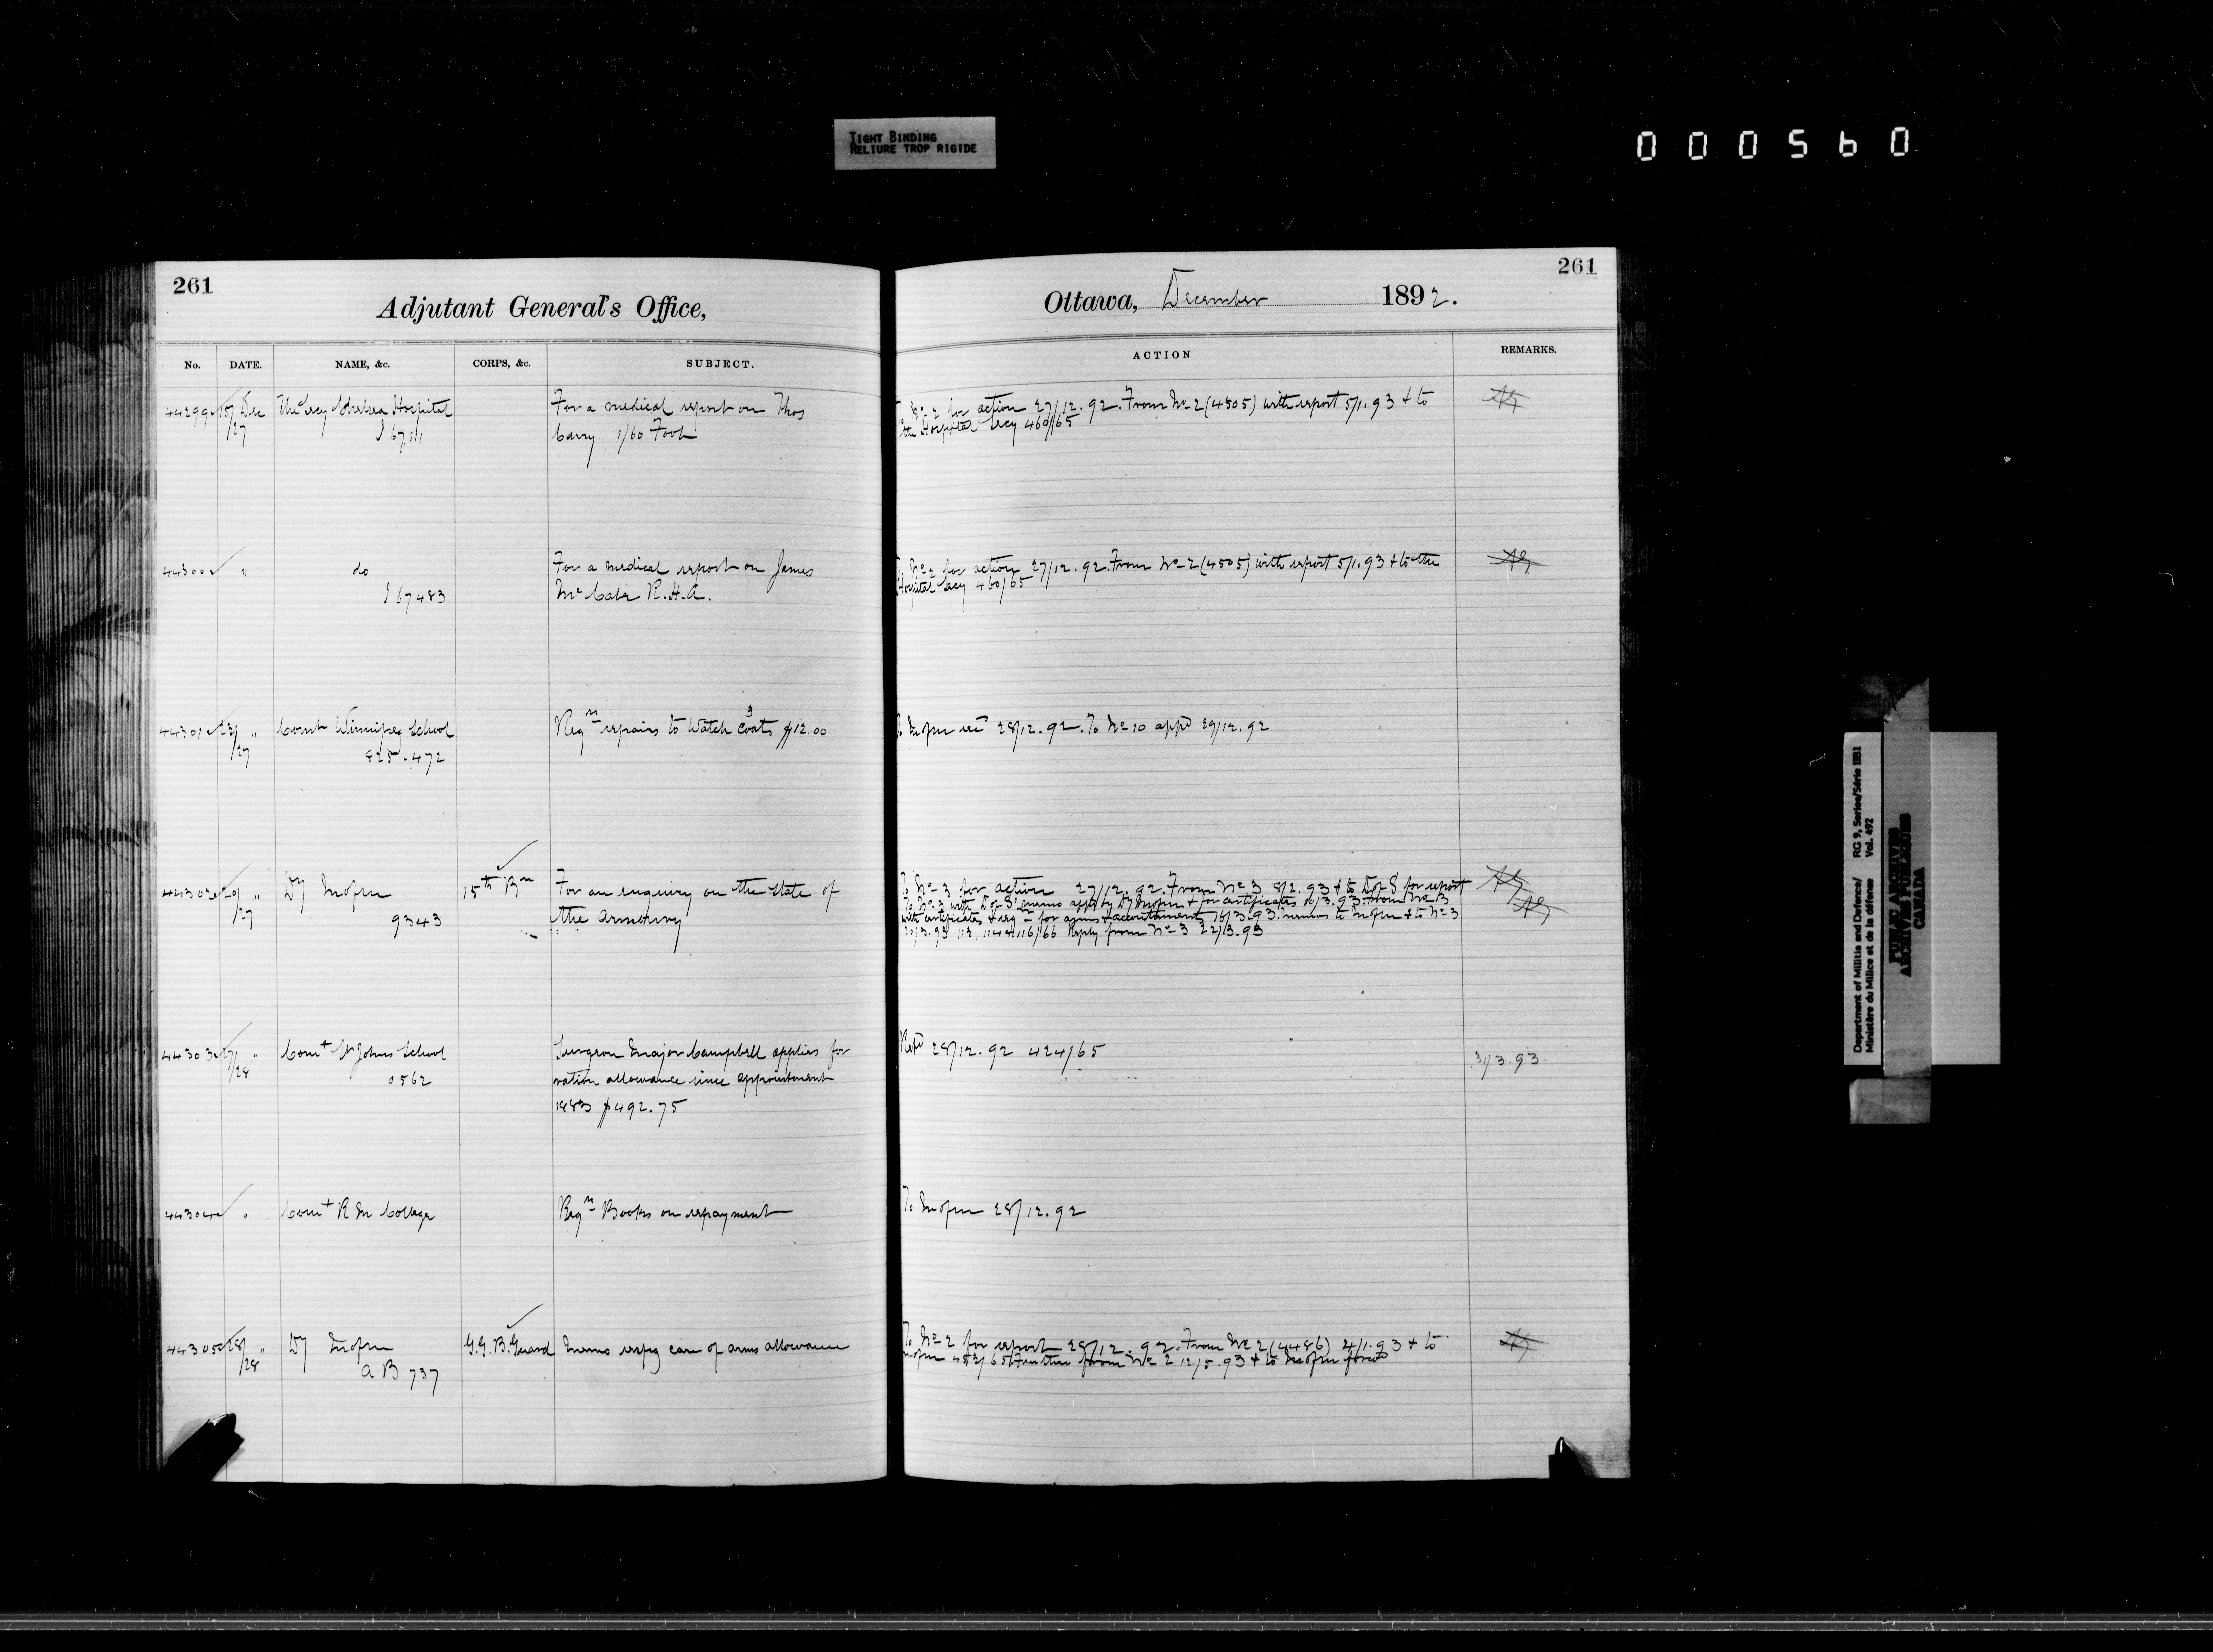 TIGHT BINDING
RELIURE TROP RIGIDE
000560
261
Adjutant General's Office,
No. DATE. NAME, &c. CORPS, &c. SUBJECT.
44299 15/27 Dec The Secy Chelsea Hospital For a medical report on Thos
Carry 1/60 Foot
44300 " do For a medical report on James
J 67483 McCabe R.H.A.
44301 23/27 " Comt Winnipeg School Reqn repairs to Watch Coats 3 $12.00
825.472
44302 20/27 " Dy 15th Bn For an enquiry on the state of
9343 the armoury
44303 27/28 " Comt St Johns School Surgeon Major Campbell applies for
0562 ration allowance since appointment
1883 $492.75
44304 " Comt R M College Reqn Books on repayment
44305 28/28 " Dy G.G.B.Guard Memo respg care of arms allowance
AB 737
261
Ottawa, December 1892.
ACTION REMARKS.
To No 2 for action 27/12.92. From No 2 (4505) with report 5/1.93 & to
the Hospital Secy 460/65
To No 2 for action 27/12.92. From No 2 (4505) with report 5/1.93 & to the
Hospital Secy 460/65
28/12.92. To No 10 appd 29/12.92
To No 3 for action 27/12.92. From No 3 8/2.93 & to D of S for report
To No 3 with D of S' memo appd by Dy & for certificates 10/3.93. From No 3
with certificates & reqn for arms & accoutrements 16/3.93. memos to & to No 3
20/3.93 113, 114 & 116/66 Reply from No 3 22/3.93
Repd 28/12.92 424/65 31/3.93
To 28/12.92
To No 2 for report 28/12.92. From No 2 (4486) 4/1.93 & to
452/65 Further from No 2 12/5.93 & to
Department of Militia and Defence/ RG 9, Series/Série IIB1
Ministère du Milice et de la défense Vol. 492
PUBLIC ARCHIVES
ARCHIVES PUBLIQUES
CANADA